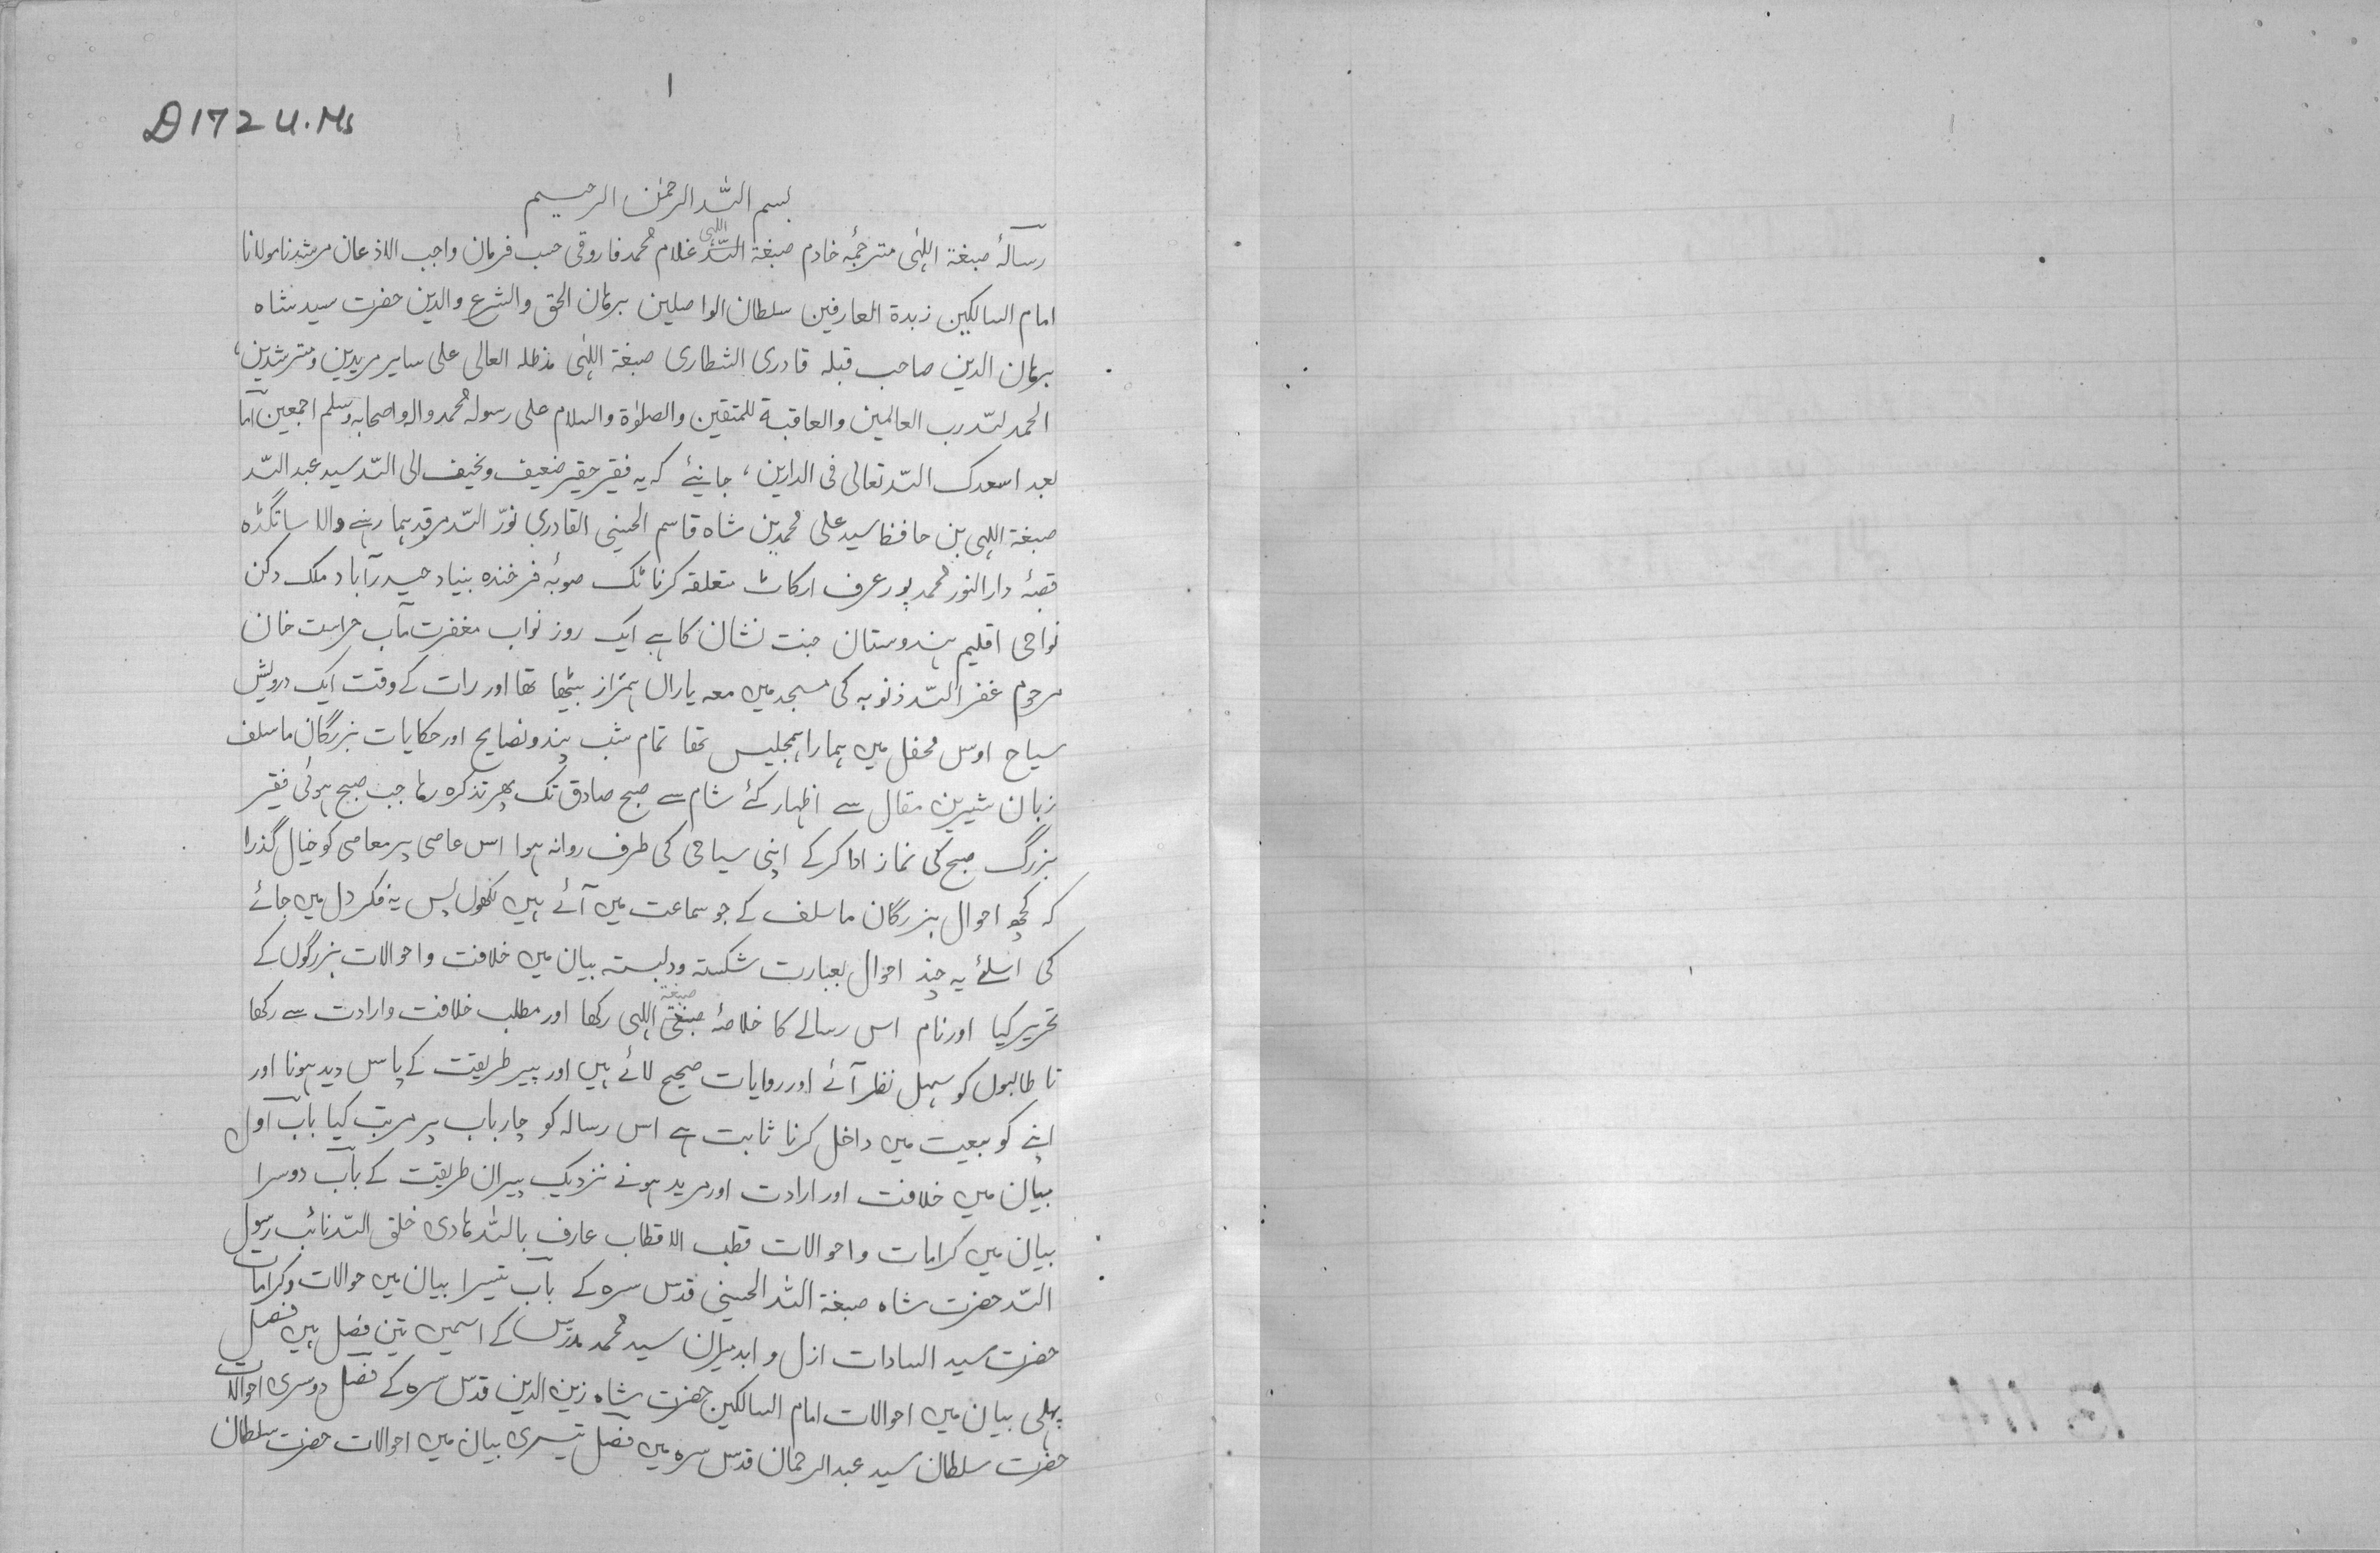 1
D172 U.Ms
بسم اللہ الرحمٰن الرحیم
رسالۂ صبغۃ اللہٰی مترجمۂ خادم صبغۃ اللّہ اللہی غلام محمد فاروقی حسب فرمان واجب الاذعان مرشدنا مولانا
امام السالکین زبدۃ العارفین سلطان الواصلین برہان الحق والشرع والدین حضرت سید شاہ
برہان الدین صاحب قبلہ قادری الشطاری صبغۃ اللہٰی مدظلہ العالی علی سایر مریدین ومسترشدین،
الحمد للّہ رب العالمین والعاقبۃ للمتقین والصلوٰۃ والسلام علی رسولہ محمد والہ واصحابہ وسلم اجمعین امّا
بعد اسعدک اللّہ تعالی فی الدارین، جانیئے کہ یہ فقیر حقیر ضعیف ونحیف الی اللّہ سید عبد اللّہ
صبغۃ اللہی بن حافظ سید علی محمد بن شاہ قاسم الحسینی القادری نوّر اللّہ مرقدہما رہنے والا ساتگڈہ
قصبۂ دار النور محمد پور عرف ارکاٹ متعلقہ کرناٹک صوبۂ فرخندہ بنیاد حیدرآباد ملک دکن
نواحی اقلیم ہندوستان جنت نشان کا ہے ایک روز نواب مغفرت مآب حراست خان
مرحوم غفر اللّہ ذنوبہ کی مسجد میں معہ یاراں ہمراز بیٹھا تھا اور رات کے وقت ایک درویش
سیاح اوس محفل میں ہمارا ہمجلیس تھا تمام شب پند و نصایح اور حکایات بزرگان ماسلف
زبان شیرین مقال سے اظہار کئے شام سے صبح صادق تک پھر تذکرہ رہا جب صبح ہوئی فقیر
بزرگ صبح کی نماز ادا کرکے اپنی سیاحی کی طرف روانہ ہوا اس عاصی پر معاصی کو خیال گذرا
کہ کچھ احوال بزرگان ماسلف کے جو سماعت میں آئے ہیں لکھوں پس یہ فکر دل میں جائے
کی اسلئے یہ چند احوال بعبارت شکستہ ودلبستہ بیان میں خلافت و احوالات بزرگوں کے
تحریر کیا اور نام اس رسالے کا خلاصۂ صبغۃ اللہی رکھا اور مطلب خلافت وارادت سے رکھا
تا طالبوں کو سہل نظر آئے اور روایات صحیح لائے ہیں اور پیر طریقت کے پاس دید ہونا اور
اپنے کو بیعت میں داخل کرنا ثابت ہے اس رسالہ کو چار باب پر مرتب کیا باب اول
بیان میں خلافت اور ارادت اور مرید ہونے نزدیک پیران طریقت کے باب دوسرا
بیان میں کرامات واحوالات قطب الاقطاب عارف باللّہ ہادی خلق اللّہ نائب رسول
اللّہ حضرت شاہ صبغۃ اللّہ الحسینی قدس سرہ کے باب تیسرا بیان میں حوالات وکرامات
حضرت سید السادات ازل و ابد میران سید محمد مدرّس کے اسمیں تین فصل ہیں فصل
پہلی بیان میں احوالات امام السالکین حضرت شاہ زین الدین قدس سرہ کے فصل دوسری احوالات
حضرت سلطان سید عبد الرحمان قدس سرہ میں فصل تیسری بیان میں احوالات حضرت سلطان